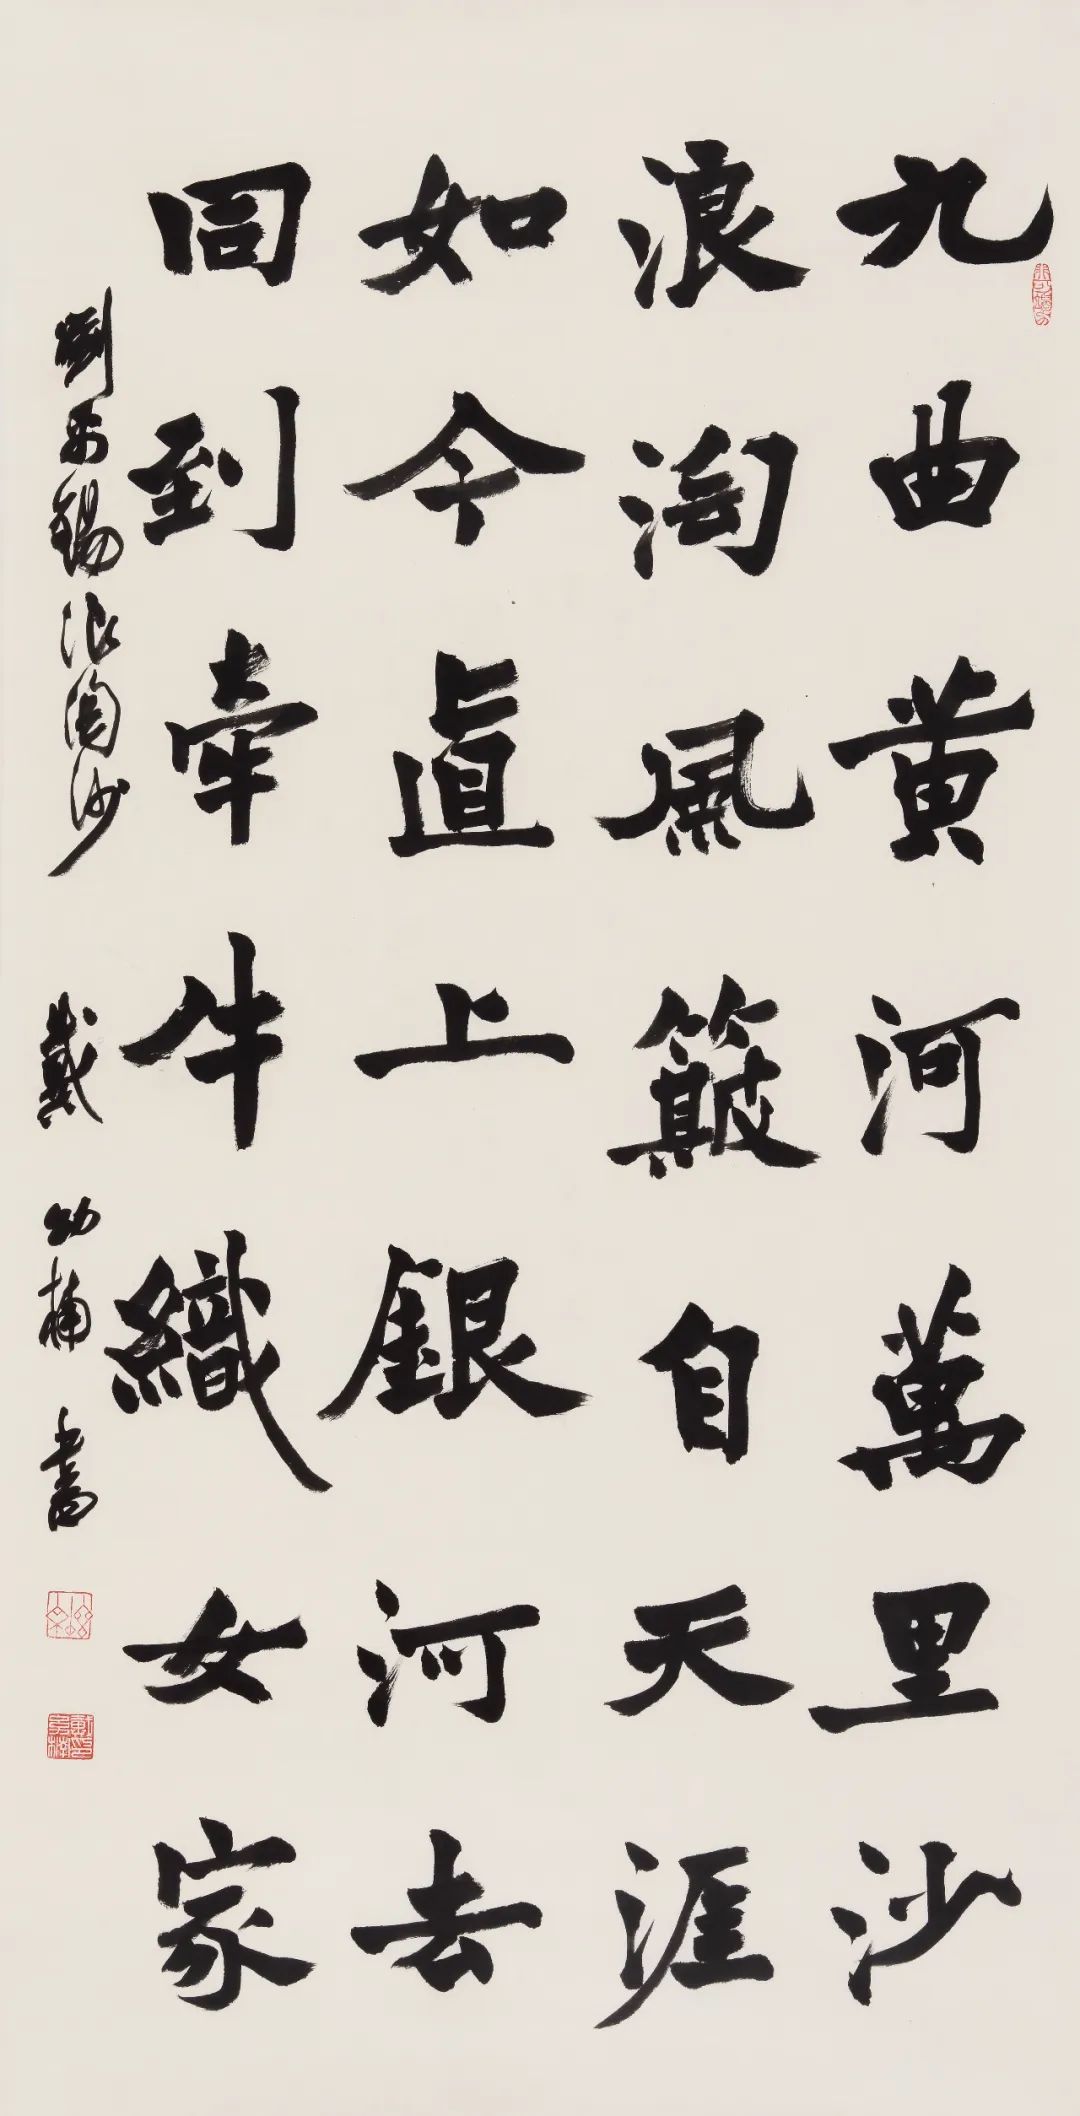 九曲黄河萬里沙
浪淘風簸自天涯
如今直上銀河去
同到牽牛織女家
劉禹錫浪淘沙 戴幼楠書